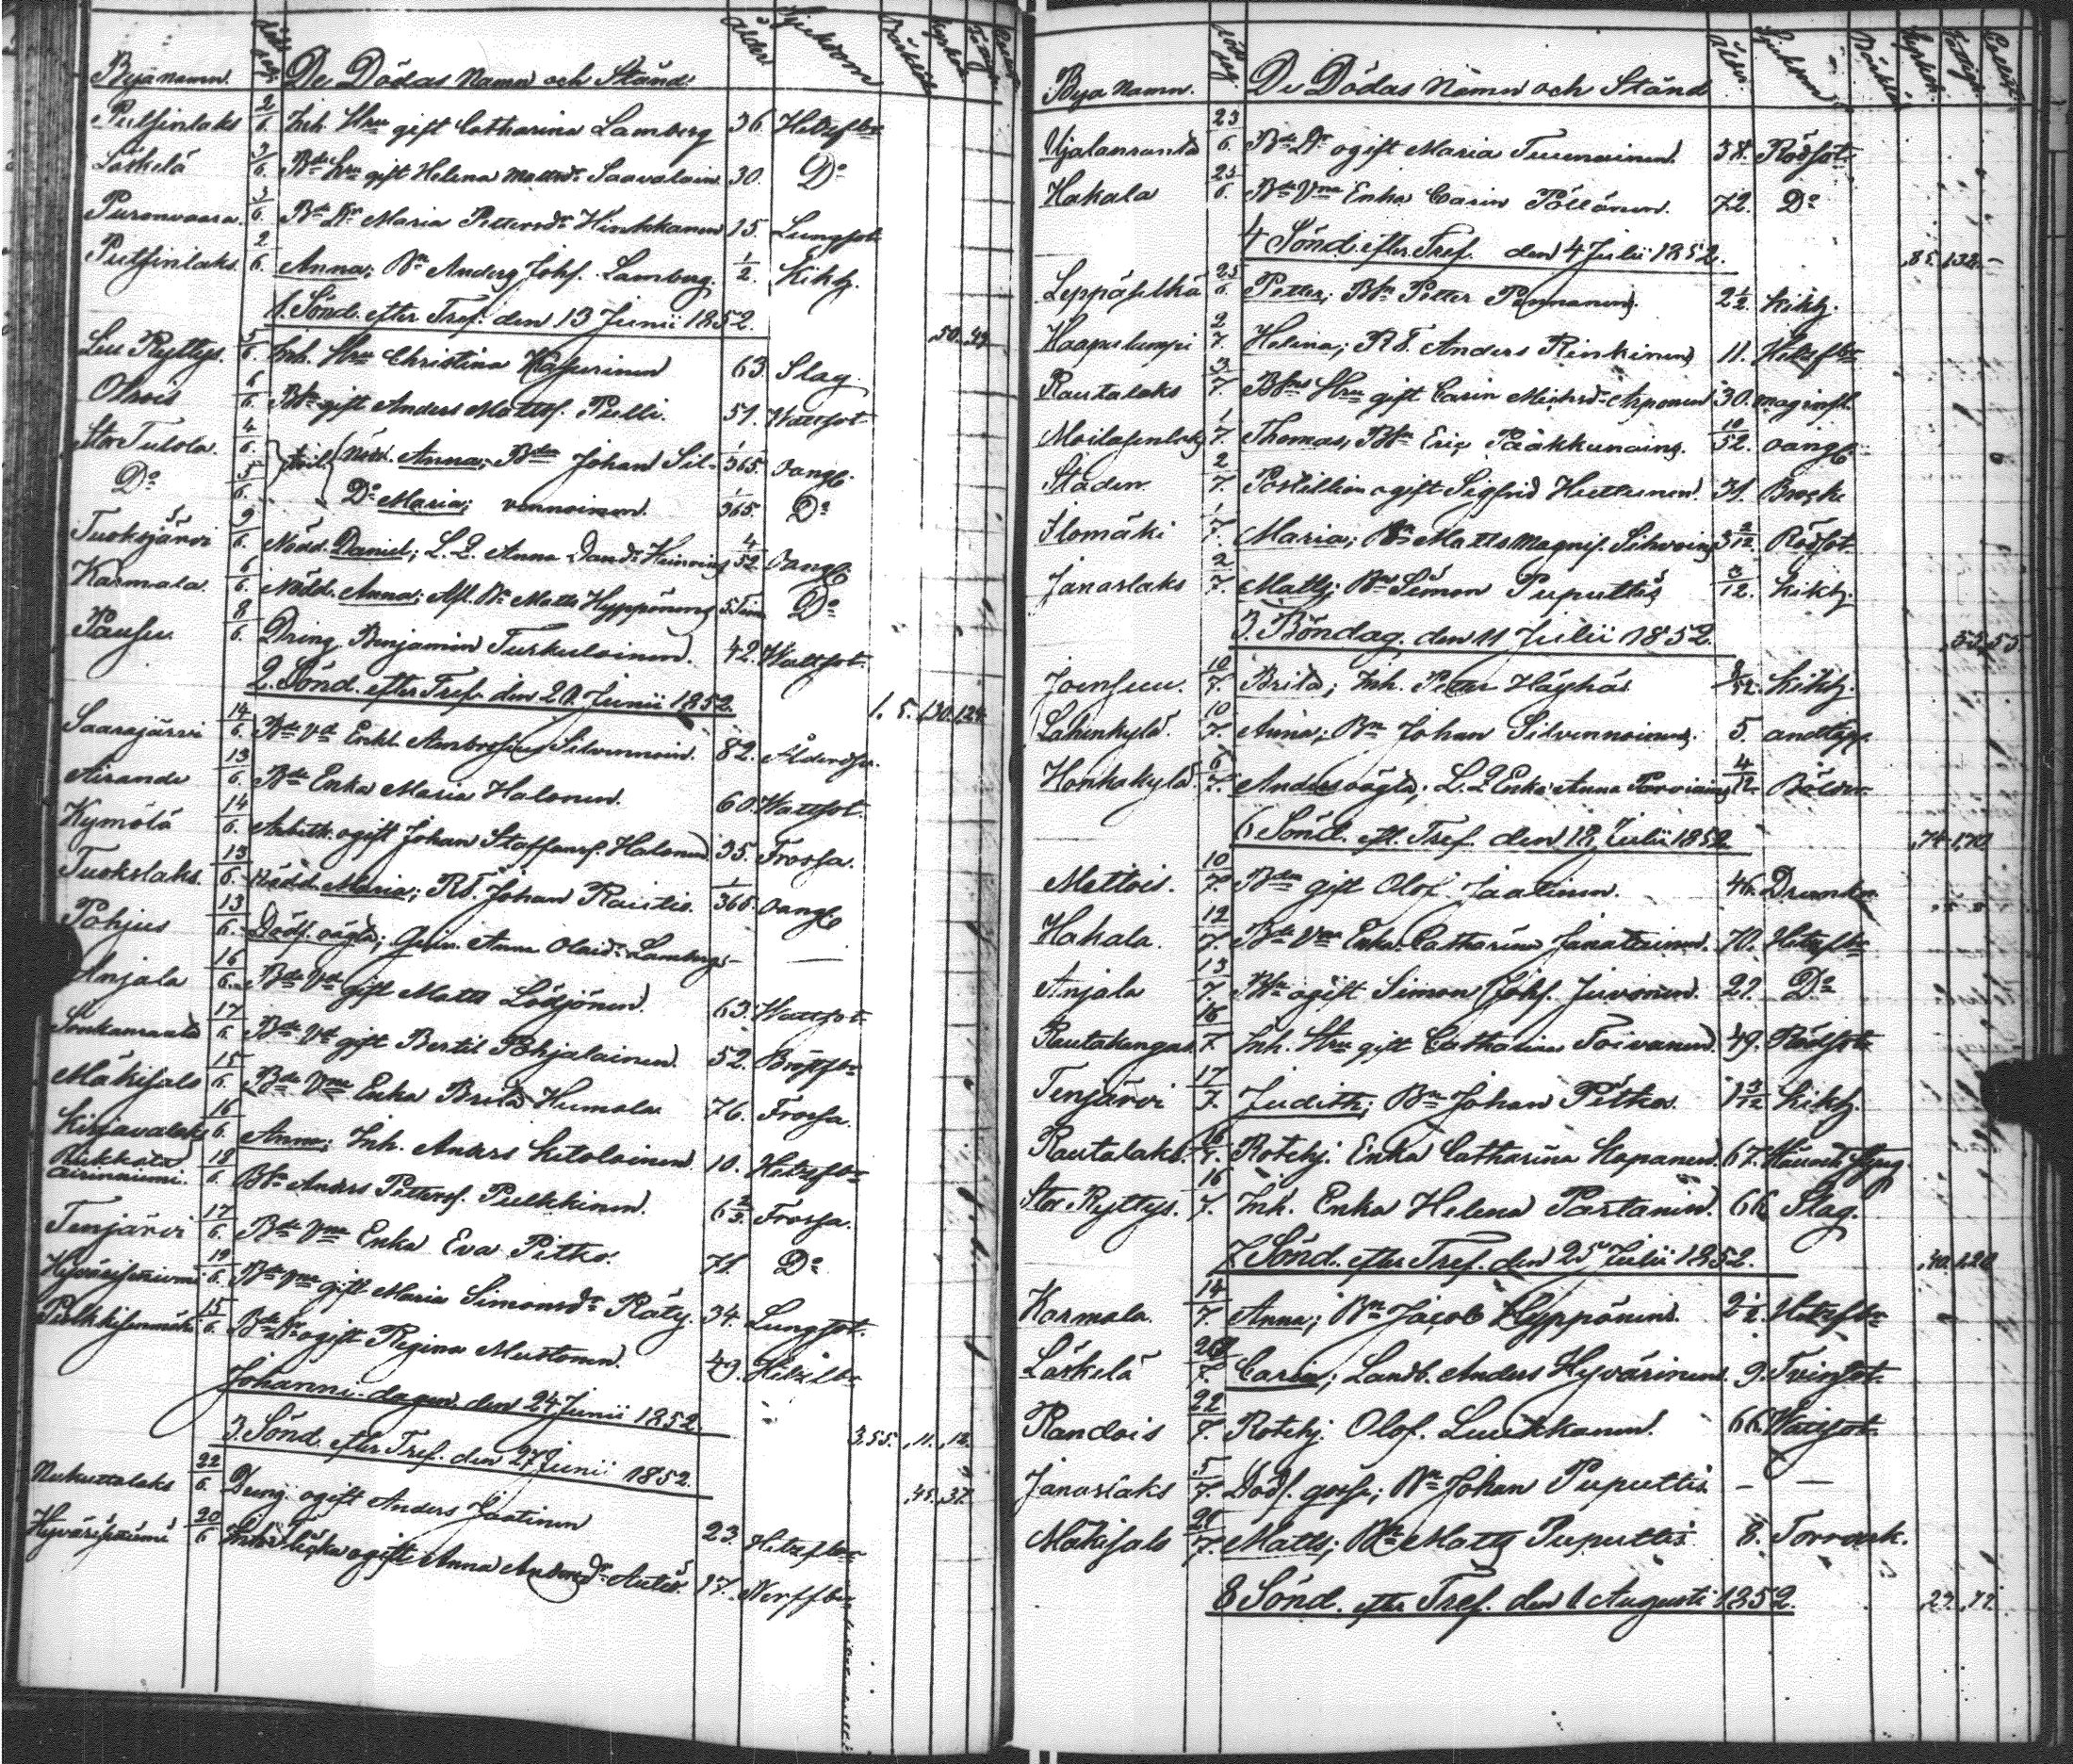 Byanamn. död dag. De Dödas Namn och Stånd. ålder Sjukdom Bårkläde Kyrkan
Putsinlaks 2/6. Inh. Hru gift Catharina Lamberg 36. Hetzfbr
Läskelä 3/6. Bde Hru gift Helena Mattsdr Saavalain 30. Do
Puronvaara. 3/6. Bde Dr Maria Pettersdr Hinkkanen 15. Lungsot
Putsinlaks. 2/6. Anna; Bn Anders Johs. Lamberg. 1/2. Kikh.
1. Sönd. efter Tref. den 13 Junii 1852. ,50. ,49.
Leu Ryttys. 5/6. Inh. Hru Christina Käsurinen 63. Slag.
Otsois 6/6. Bde gift Anders Mattss. Pulli. 51. Wattsot
Stor Tulola. 4/6. Nöd. Anna; Bden Johan Sil- 1/365. oangf.
Do 5/6. Do Maria; vennoinen. 1/365. Do
Tuoksjärvi 9/6. Nödd. Daniel; L. Q. Anna Dandr Heinoings 4/52 Oangf.
Karmala. 6/6. Nödd. Anna; Afl. Bn Matts Hyppönens 5 Tim Do
Pausu 8/6. Dräng Benjamin Turkulainen. 42. Wattsot.
2. Sönd. efter Tref. den 20 Junii 1852. 1. 5. ,130. ,124.
Saarajärvi 14/6. Bde Vd Enkl. Ambrosius Silvennoin. 82. Ålderdsr.
Airande 13/6. Bde Enka Maria Halonen. 60. Wattsot.
Kymölä 14/6. Arbetk. ogift Johan Staffanss. Halonen 35. Frossa.
Tuokslaks. 13/6. Nödd. Maria; Rs. Johan Rautis. 1/365. oangf.
Pohjus 13/6. Dödf. oägta; Qvin. Anna Olaidr Lambergs —
Anjala 16/6. Bde Vd gift Matts Lötjönen. 63. Wattsot.
Sonkamaada 17/6 Bde Vd gift Bertil Pohjalainen. 52. Bröstfbr
Mäkisalo 15/6. Bde Vme Enka Brita Humala 76. Frossa.
Kirjavalaks 16/6. Anna; Inh. Anders Litolainen 10. Hetzfbr
Rukkola
Airinaumi. 18/6. Bde Anders Petterss. Pulkkinen. 6 2/3. Frossa.
Tenjärvi 17/6. Bde Vme Enka Eva Pitko. 71. Do
19/6. Bde Vme gift Maria Simonsdr Räty. 34. Lungsot.
Pulkkisenmäki 15/6. Bde Dr ogift Regina Mustonen. 49. Hetzfbr
Johannis dagen den 24 Junii 1852. 3.55. ,11. ,12.
3. Sönd. efter Tref. den 27 Junii 1852. ,45. ,37.
Nukuttalaks 22/6. Dräng ogift Anders Jaatinen 23. Hetzfbr
20/6 flicka ogift Anna Andersdr Autio. 17. Nerffbr
Bya Namn. död dag. De Dödas Namn och Stånd Ålder. Sjukdom Bårkläde Kyrkan
Ujalanranda 23/6. Bde Dr ogift Maria Turunainen. 38. Rödsot
Hakala 23/6. Bde Vme Enka Carin Pöllänen. 72. Do
4 Sönd. efter Tref. den 4 Julii 1852. ,85. ,132. —
Leppäselkä 25/6. Petter; Bde Petter Pennanens. 2 1/2. Kikh.
Haapalampi 2/7. Helena; R S. Anders Rinkinens 11. Hetzfbr
Rautalaks 3/7. Bns Hru gift Carin Michsdr Arponen 30. maginfl.
Moilasenlaks 1/7. Thomas; Bde Eric Pääkkunains. 10/52. oangf.
Staden 2/7. Postillion ogift Sigfrid Huttunen. 31. Brock
Ilomäki 1/7. Maria; Bn Matts Magnis. Sihvoins 3 2/12. Rödsot.
Janaslaks 2/7. Matts; Bn Simon Puputtis 3/12. Kikh.
3. Böndag. den 11 Julii 1852. ,53. ,55
Joensuu. 10/7. Brita; Inh. Petter Häyhäs 8/52. Kikh.
Lahenkylä. 10/7. Anna; Bn Johan Silvennoinens. 5. andtäpp.
Honkakylä. 6/7. Anders oägta; L. Q. Enka Anna Parviains 4/12. Bölder
6 Sönd. eft. Tref. den 18 Julii 1852. ,74. ,170
Mettois. 10/7. Bden gift Olof Jaatinen. 46. Drunkn.
Hakala. 12/7. Bde Vme Enka Catharina Janatuinen. 70. Hetzfbr
Anjala 13/7. Bde ogift Simon Johs. Juvonen. 29. Do
Rautakangas. 16/7. Inh. Hru gift Catharina Toivanen. 49. Rödsot.
Tenjärvi 17/7. Judith; Bn Johan Pitkos. 1 3/12 Kikh.
Rautalaks. 16/7. Rotehj. Enka Catharina Kapanen. 67.
Stor Ryttys. 16/7. Inh. Enka Helena Partanen. 66 Slag.
7 Sönd. efter Tref. den 25 Julii 1852. ,40. ,120
Karmala. 14/7. Anna; Bn Jacob Hyppönens. 2 1/2. Hetzfbr
Läskelä 20/7. Carin; Landb. Anders Hyvärinens. 9. Tvinsot.
Randois 22/7. Rotehj. Olof. Luukkanen. 66. Wattsot.
Janaslaks 5/7. Dödf. gosse; Bn Johan Puputtis — —
Mäkisalo 20/7. Matts; Bn Matts Puputtis. 8. Torrvärk.
8 Sönd. efter Tref. den 1 Augusti 1852. ,27. ,77.